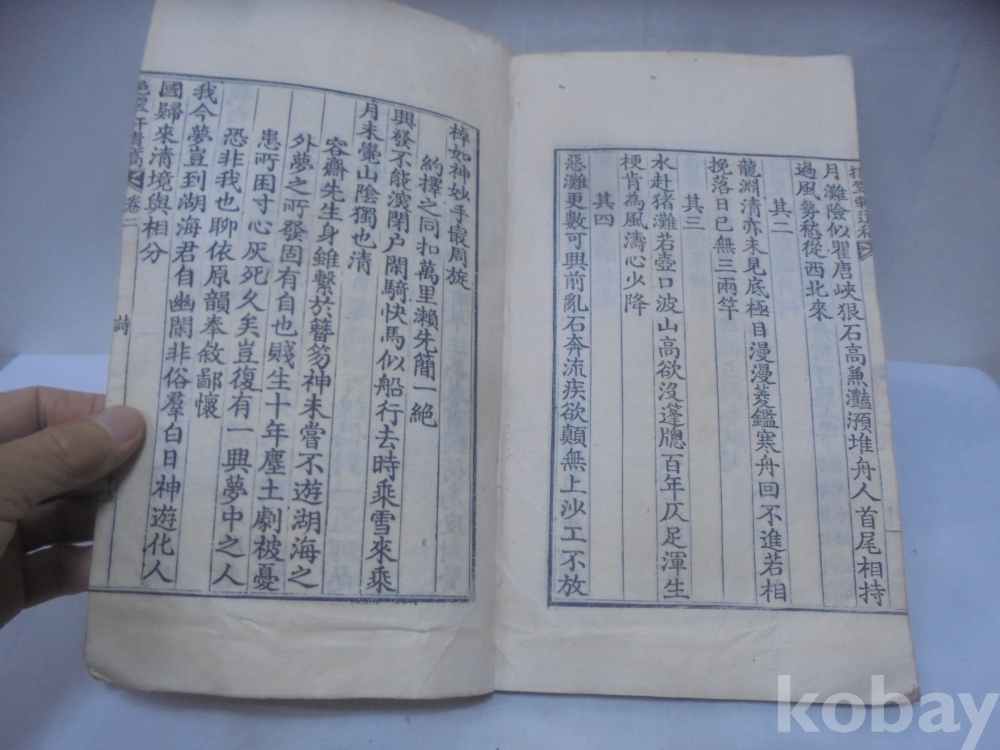 月灘險似瞿唐峽狠石高兼灩澦堆舟人首尾相持
過風勢愁從西北來
其二
龍淵清亦未見底極目漫漫菱鑑寒舟回不進若相
挽落日已無三兩竿
其三
水赴猪灘若壺口波山高欲沒蓬牕百年仄足渾生
梗肯為風濤心少降
其四
惡灘更數可興前亂石奔流疾欲顛無上沙工不放
棹如神妙手最周旋
約擇之同扣萬里瀨先簡一絶
興發不能深閉户閑騎快馬似船行去時乘雪來乘
月未覺山陰獨也清
容齋先生身雖繫於簪笏神未嘗不遊湖海之
外夢之所發固有自也賤生十年塵土劇被憂
患所困寸心灰死久矣豈復有一興夢中之人
恐非我也聊依原韻奉敘鄙懷
我今夢豈到湖海君自幽閑非俗羣白日神遊化人
國歸來清境與相分
卷二
詩
kobay